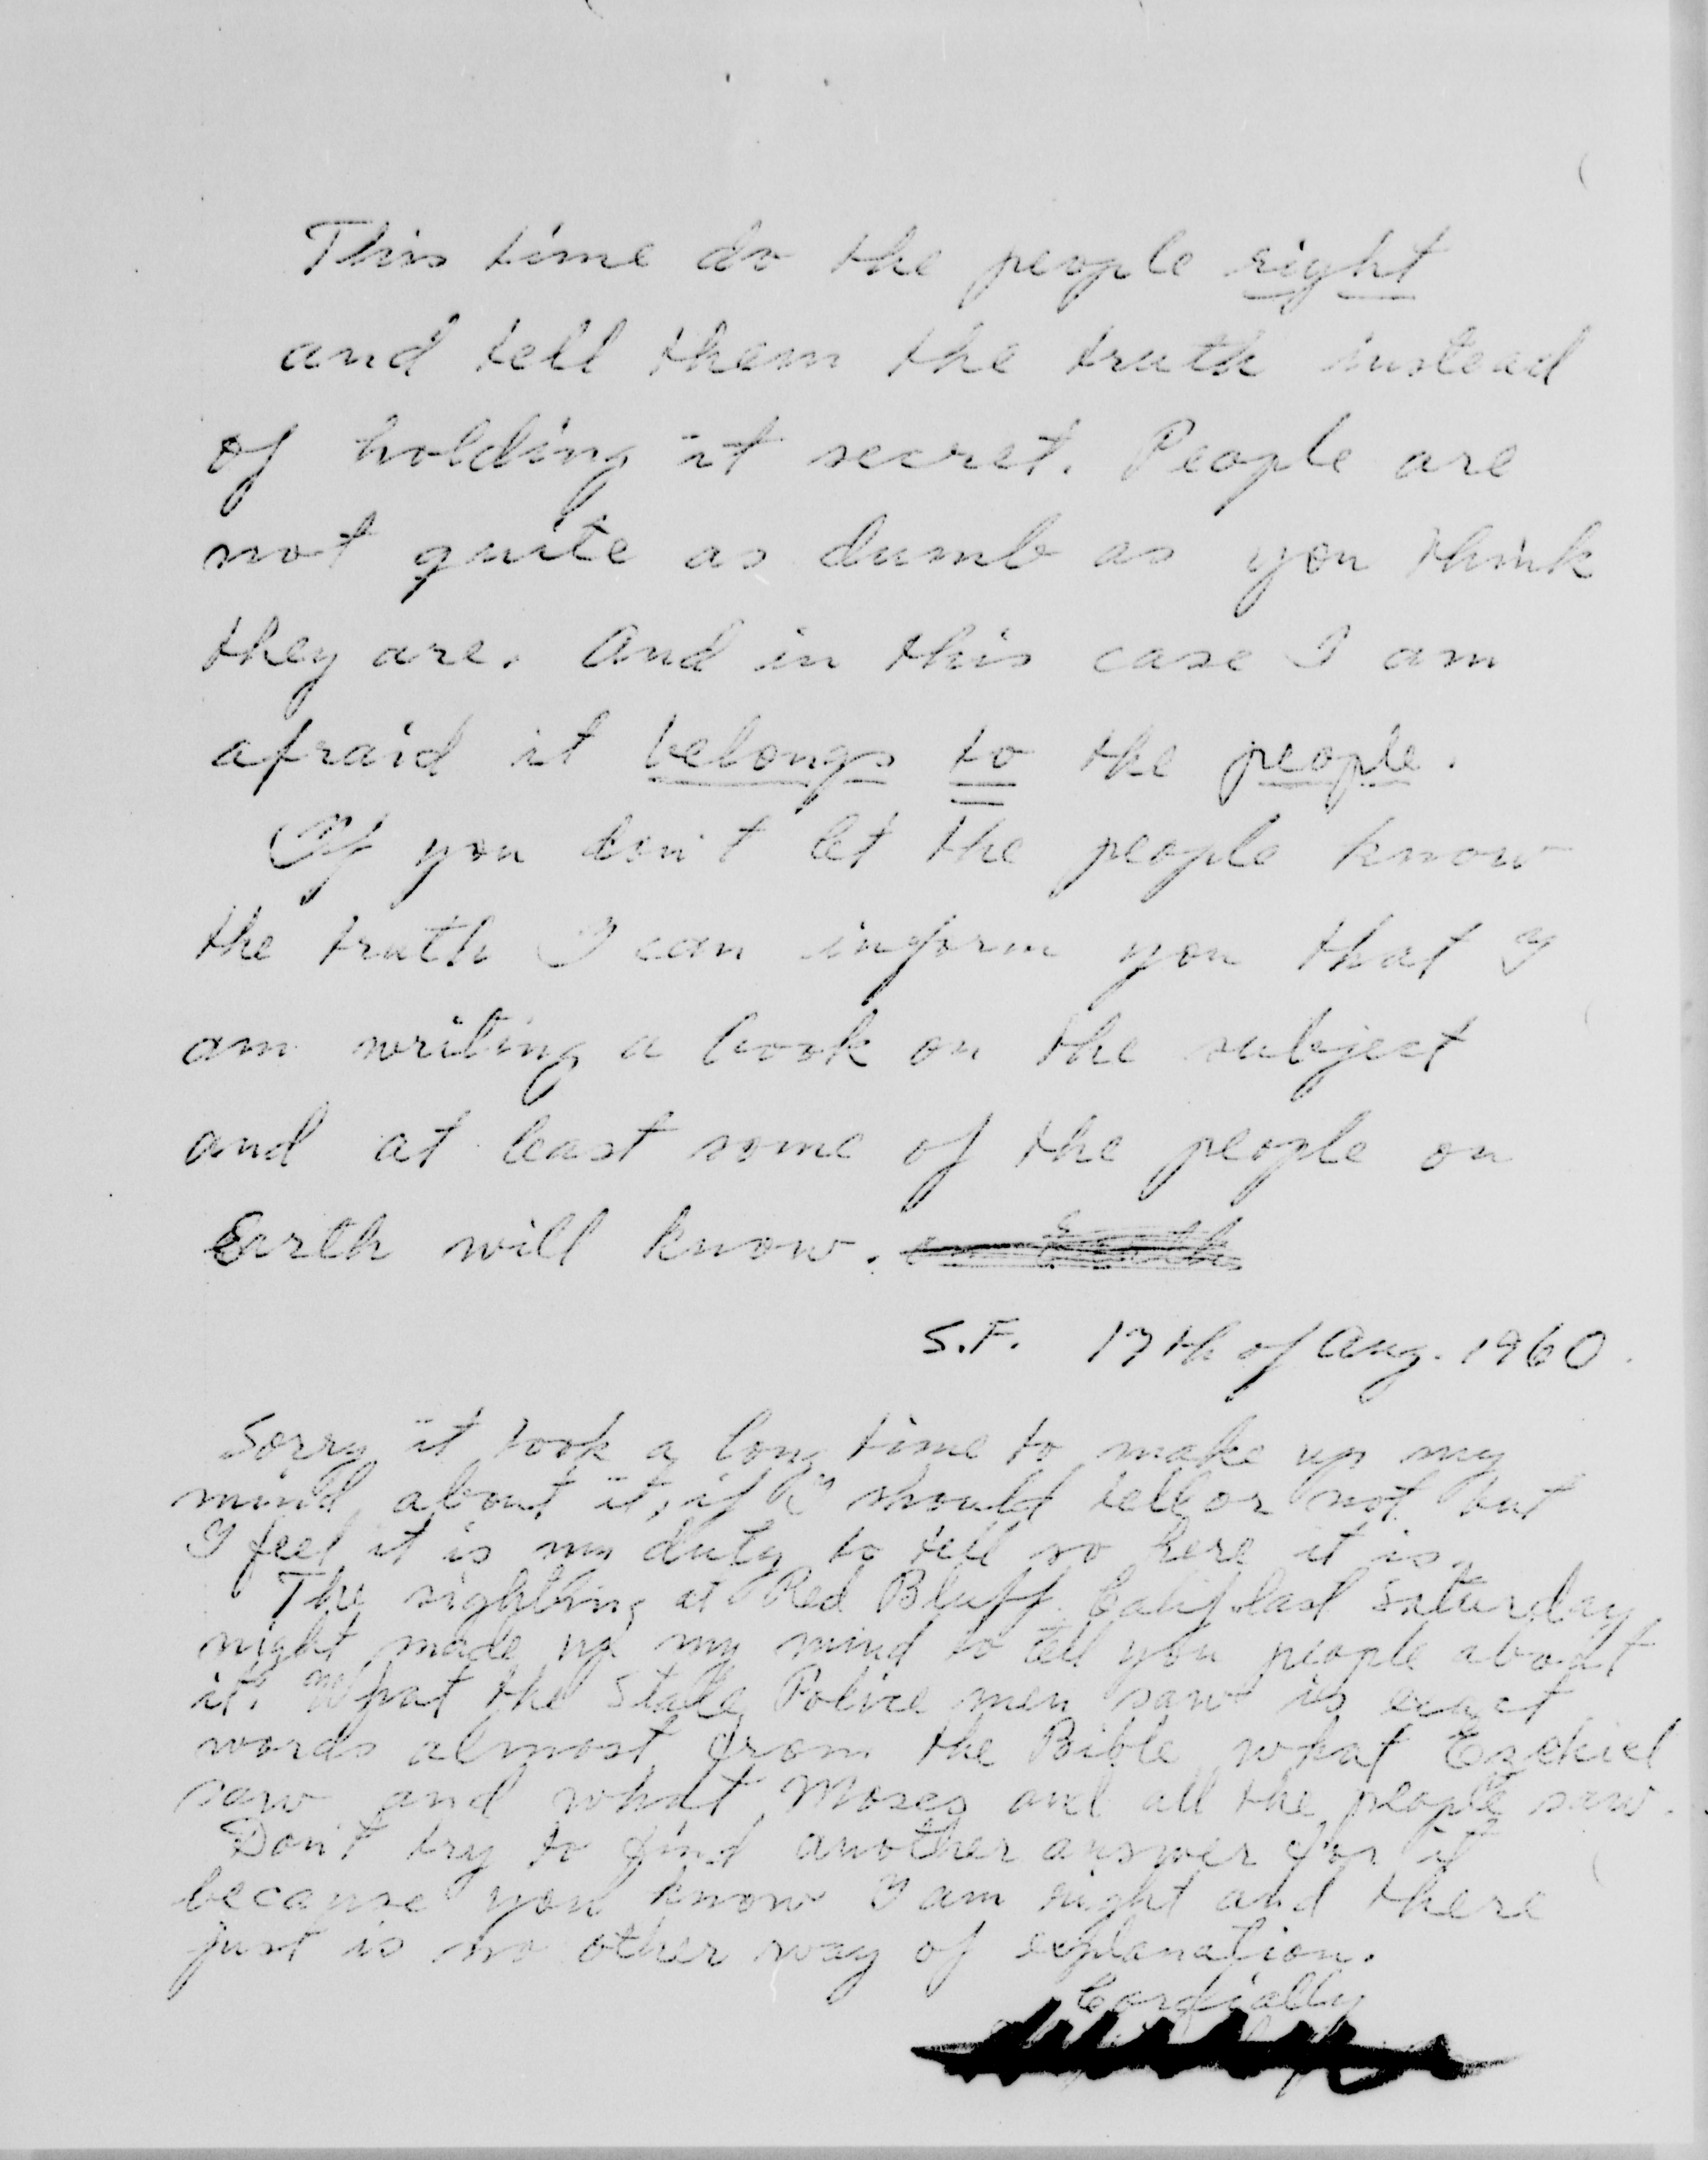 This time do the people right
and tell them the truth instead
of holding it secret. People are
not quite as dumb as you think
they are. And in this case I am
afraid it belongs to the people.
If you don't let the people know
the truth I can inform you that I
am writing a book on the subject
and at least some of the people on
Earth will know.
S.F. 17th of Aug. 1960.
Sorry it took a long time to make up my
mind about it, if I should tell or not but
I feel it is my duty to tell so here it is.
The sighting at Red Bluff Calif last Saturday
night made up my mind to tell you people about
it. What the State Police men saw is exact
words almost from the Bible what Ezekiel
saw and what Moses and all the people saw.
Don't try to find another answer for it
because you know I am right and there
just is no other way of explanation.
Cordially